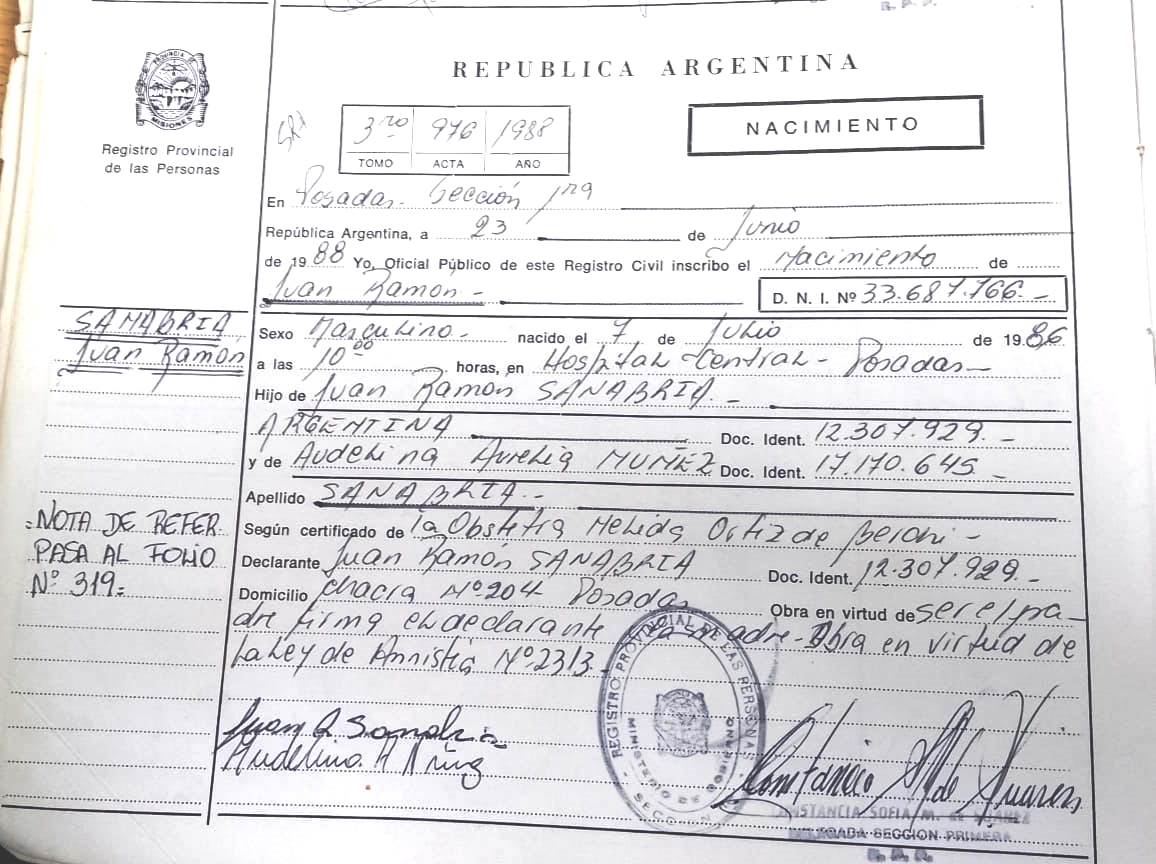 REPUBLICA ARGENTINA
PROVINCIA DE
MISIONES
Registro Provincial
de las Personas
3ro 976 1988
TOMO ACTA AÑO
NACIMIENTO
En Posadas - Sección 1ra
República Argentina, a 23 de Junio
de 1988 Yo, Oficial Público de este Registro Civil inscribo el Nacimiento de
Juan Ramón - D. N. I. Nº 33.687.766 -
SANABRIA
Juan Ramón
Sexo Masculino - nacido el 7 de Julio de 1986
a las 10 00 horas, en Hospital Central - Posadas -
Hijo de Juan Ramón SANABRIA -
ARGENTINA Doc. Ident. 12.307.929. -
y de Audelina Aurelia MUÑEZ Doc. Ident. 17.170.645 -
Apellido SANABRIA -
Según certificado de la Obstetra Nelida Ortiz de -
Declarante Juan Ramón SANABRIA Doc. Ident. 12.307.929. -
Domicilio Chacra Nº 204 Posadas Obra en virtud de ser el pa-
dre firma el declarante la madre - Obra en virtud de
la Ley de Amnistia Nº 2313 -
=NOTA DE REFER.
PASA AL FOLIO
Nº 319=
Juan R Sanabria
Audelina A
REGISTRO PROVINCIAL DE LAS PERSONAS
MINISTERIO DE GOBIERNO
CONSTANCIA SOFIA M. de
DELEGADA SECCION PRIMERA